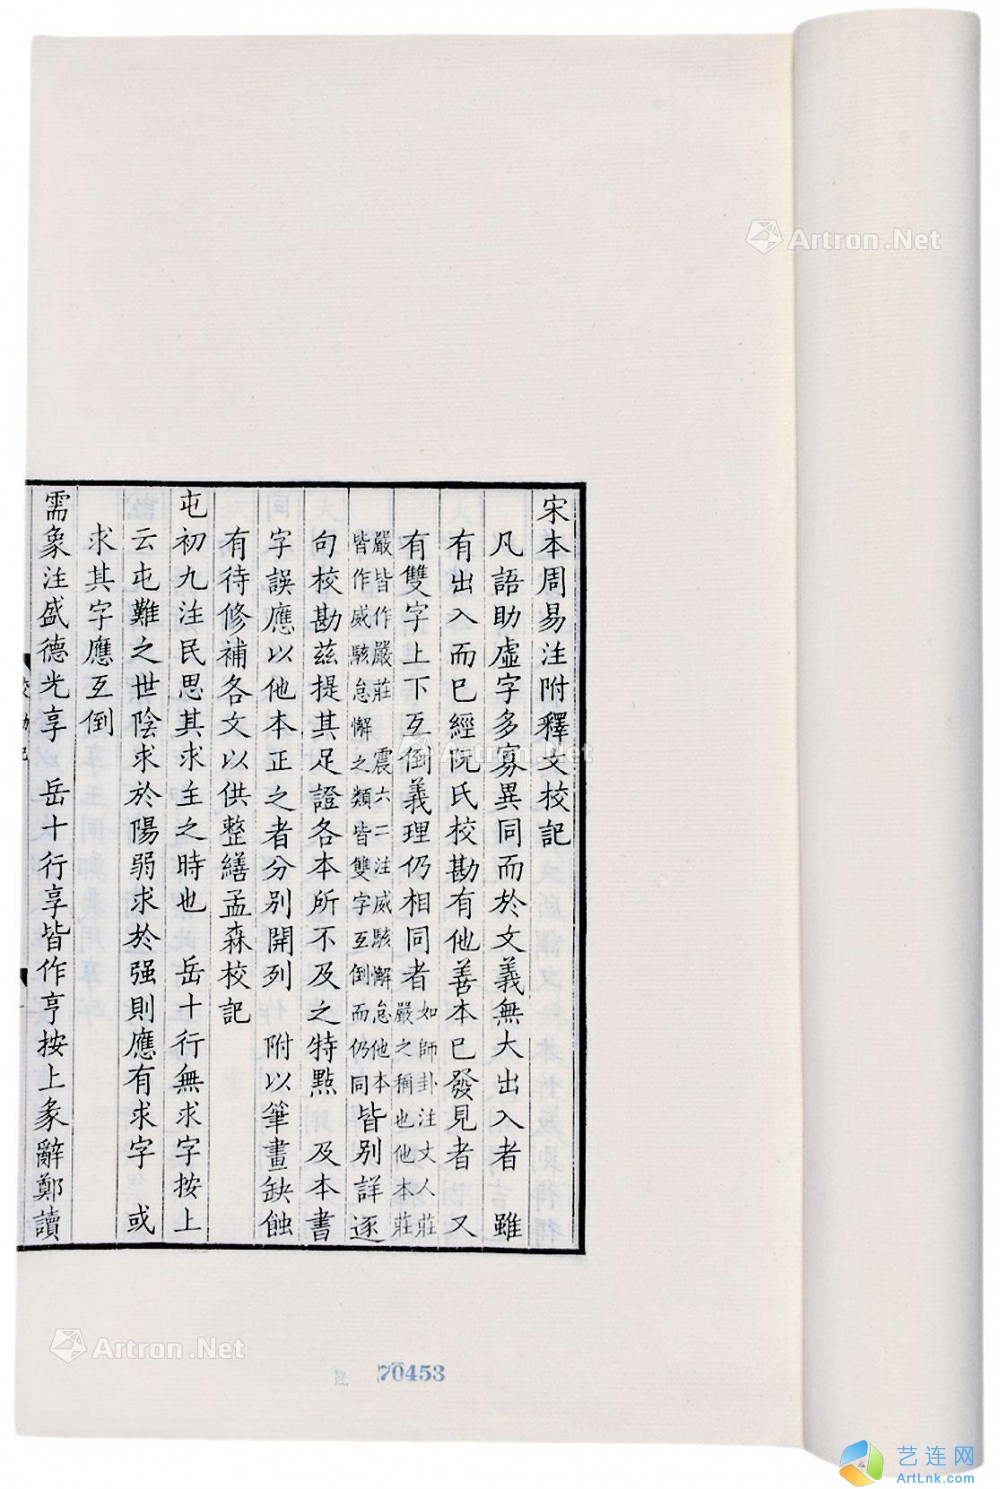 宋本周易注附釋文校記
凡語助虛字多寡異同而於文義無大出入者 雖
有出入而已經阮氏校勘有他善本已發見者 又
有雙字上下互倒義理仍相同者如師卦注丈人莊
嚴之稱也他本莊
嚴皆作嚴莊 震六二注威駭懈怠他本
皆作威駭怠懈之類皆雙字互倒而仍同皆別詳逐
句校勘茲提其足證各本所不及之特點 及本書
字誤應以他本正之者分別開列 附以筆畫缺蝕
有待修補各文以供整繕孟森校記
屯初九注民思其求主之時也 岳十行無求字按上
云屯難之世陰求於陽弱求於强則應有求字 或
求其字應互倒
需彖注盛德光享 岳十行享皆作亨按上彖辭鄭讀
校勘記
一
Artron.Net
Artron.Net
Artron.Net
70453
艺连网
ArtLnk.com